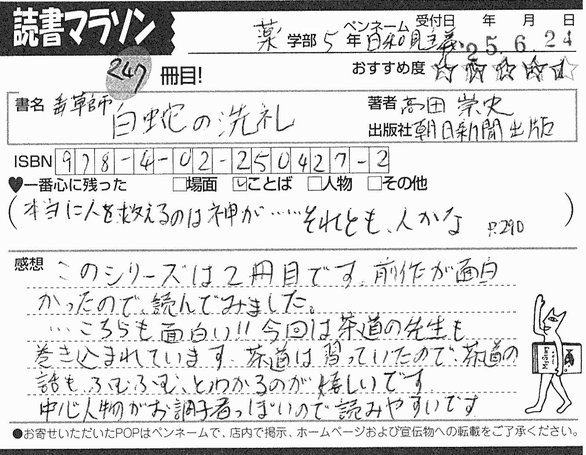 読書マラソン
薬 学部 5 年 ペンネーム 日和見主義 受付日 年 月 日
25.6.24
247 冊目! おすすめ度 ☆☆☆☆☆
書名 毒草師 白蛇の洗礼
著者 高田崇史
出版社 朝日新聞出版
ISBN 978-4-02-250427-2
♥一番心に残った □場面 ☑ことば □人物 □その他
(本当に人を救えるのは神か……それとも、人かな P.290)
感想 このシリーズは2冊目です。前作が面白
かったので、読んでみました。
…こちらも面白い!!今回は茶道の先生も
巻き込まれています。茶道は習っていたので、茶道の
話もふむふむ、とわかるのが嬉しいです
中心人物がお調子者っぽいので読みやすいです
●お寄せいただいたPOPはペンネームで、店内で掲示、ホームページおよび宣伝物への転載をご了承ください。